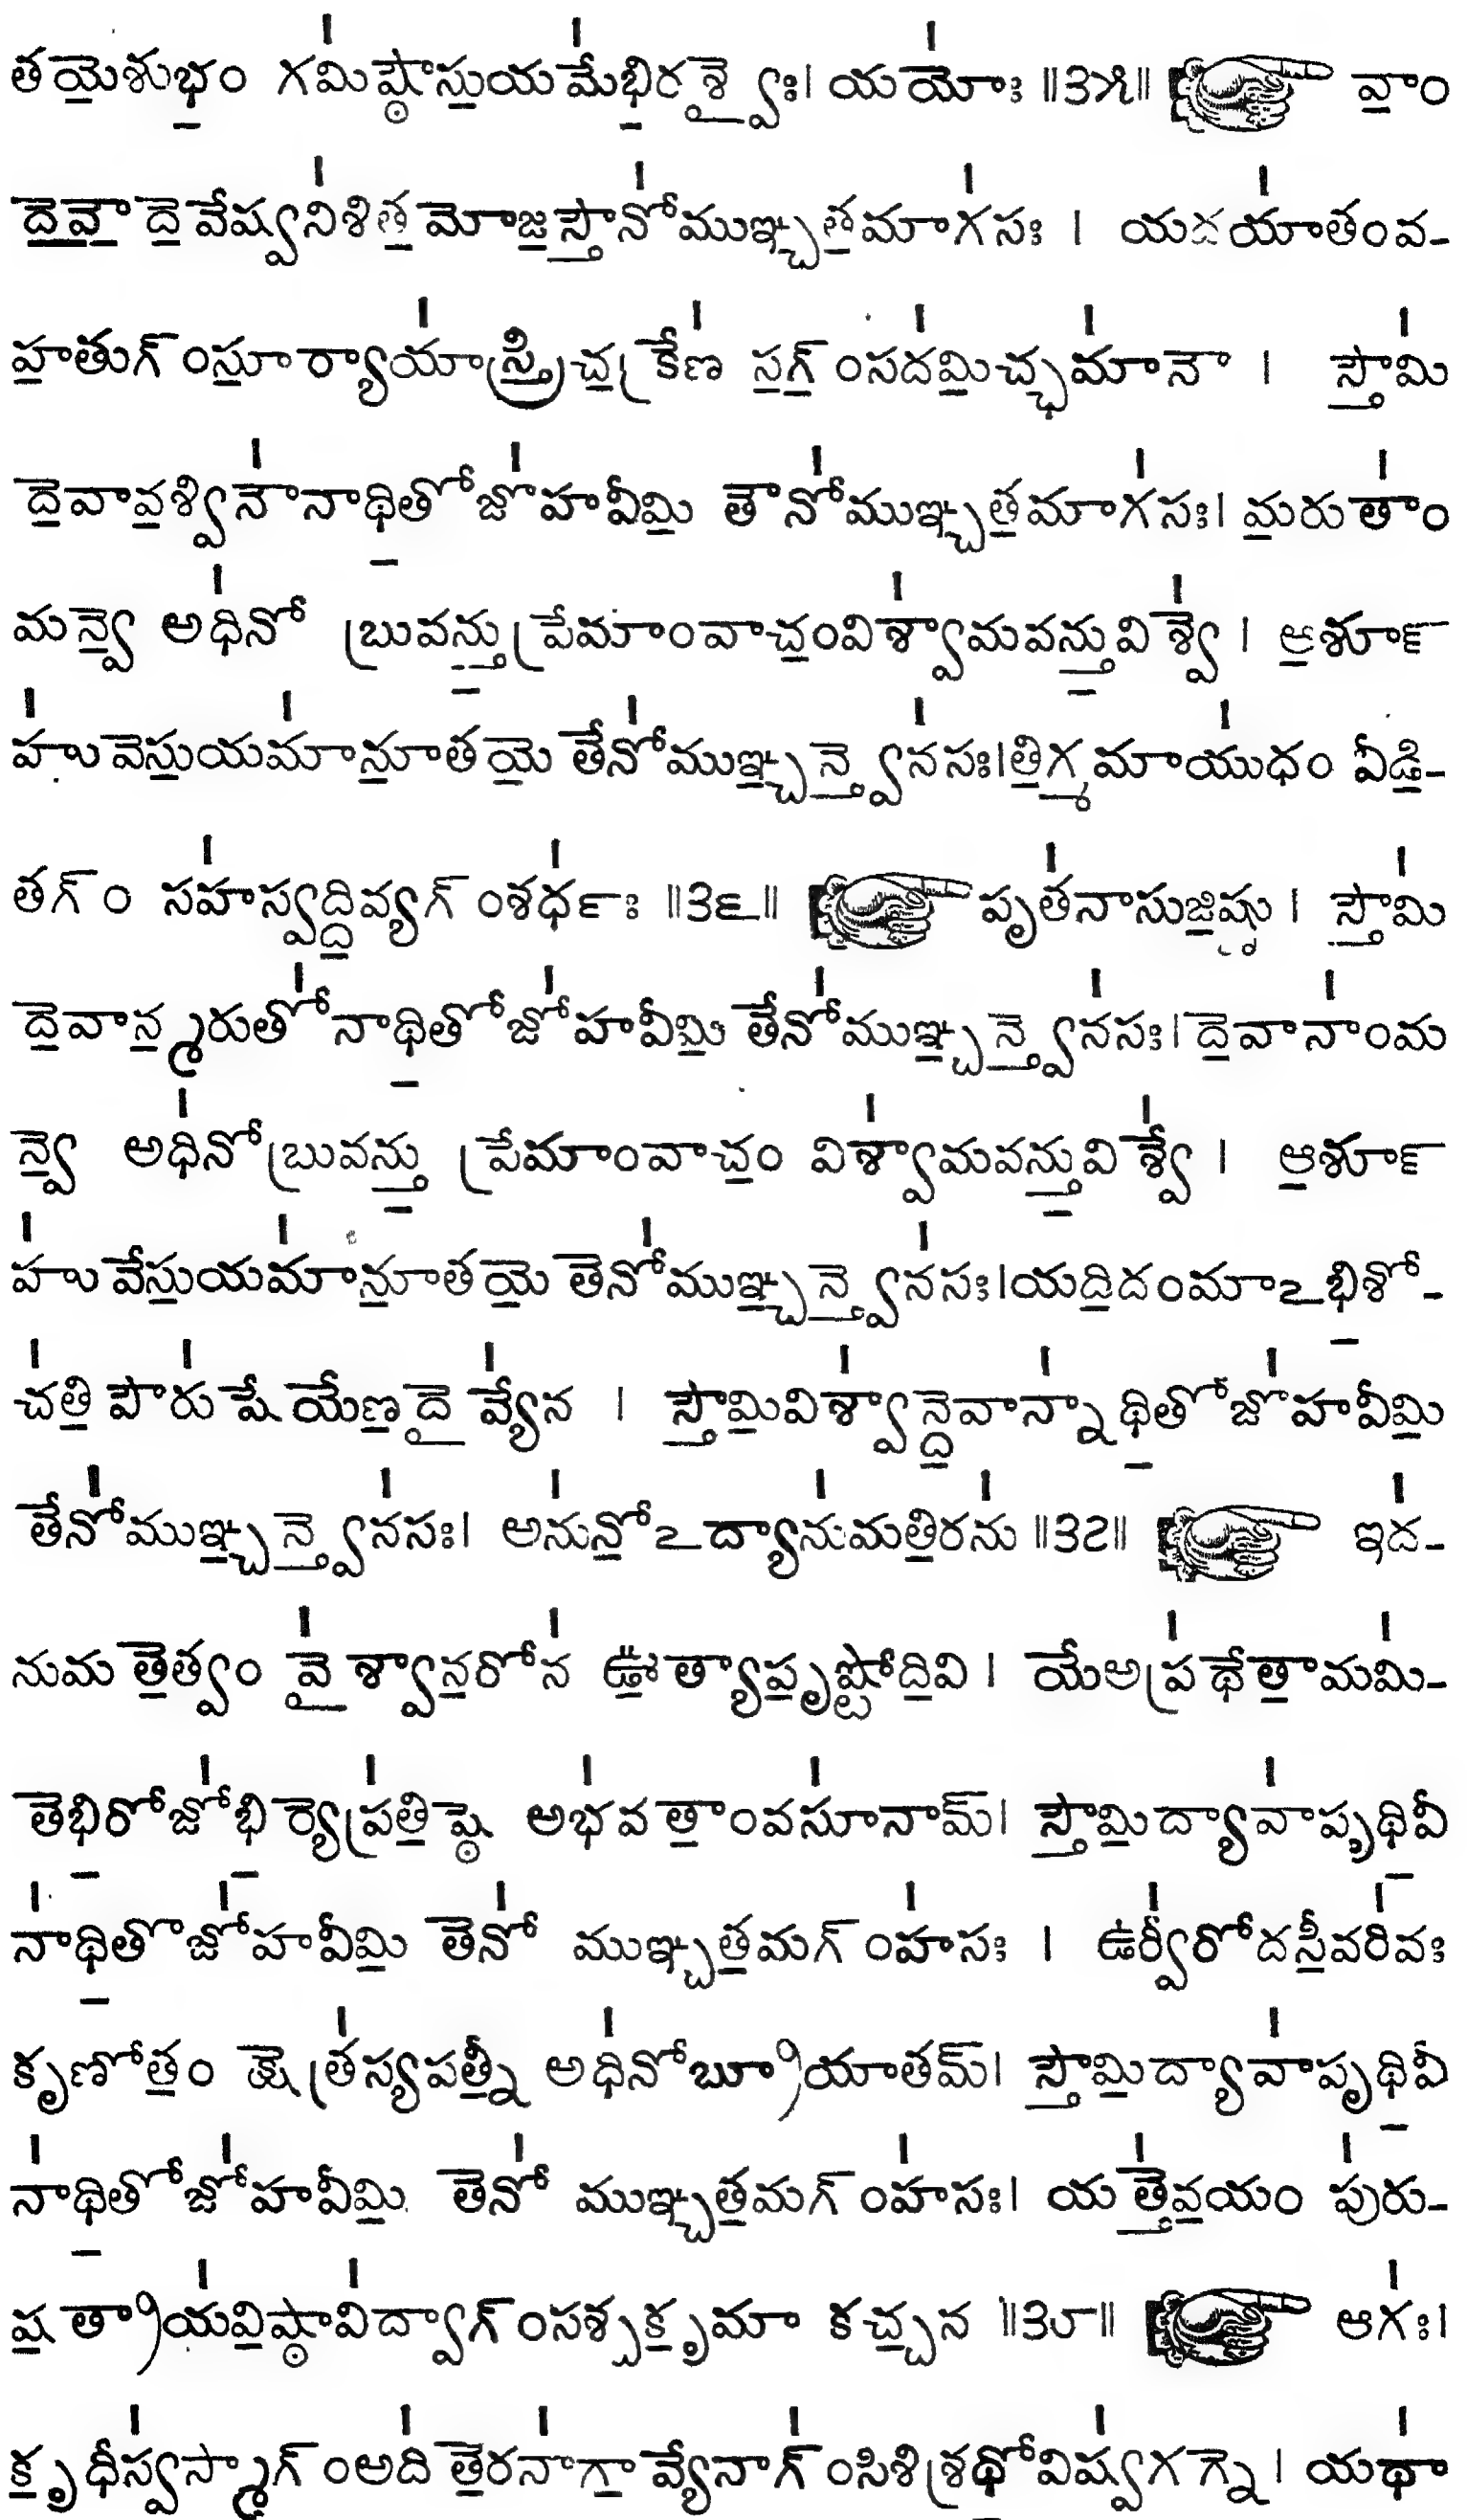 త॒యై॒శుభం॒ గమి॑ష్ఠౌ॒స్తు॒యమే॑భి॒ర॒శ్వైః॑। యయోః॑ ॥౩౫॥ వాం॒
దే॒వౌ॒ దే॒వేష్వని॑శిత॒మోజ॒స్తౌనో॑ముఞ్చత॒మాగ॑సః । యదయా॑తంవ-
హ॒తుగ్ంసూ॒ర్యాయా॑స్త్రిచ॒క్రేణ॑ స॒గ్॒ంసద॑మి॒చ్ఛమా॑నౌ । స్తౌ॒మి
దే॒వావ॒శ్వినౌ॑నాథి॒తోజో॑హవీమి॒ తౌనో॑ముఞ్చత॒మాగ॑సః। మ॒రుతాం॑
మన్వే॒ అధి॑నో బ్రువన్తు॒ప్రేమాంవాచం॒విశ్వా॑మవన్తు॒విశ్వే॑ । ఆ॒శూ౯
హు॑వేస్తు॒యమా॑నూ॒తయే॒ తేనో॑ముఞ్చ॒న్త్వేన॑సః।తి॒గ్మమాయు॑ధం వీడి॒-
తగ్ం సహ॑స్వద్ది॒వ్యగ్ంశర్ధః॑ ॥౩౬॥ పృత॑నాసుజి॒ష్ణు । స్తౌ॒మి॑
దే॒వాన్మ॒రుతో॑నాథి॒తోజో॑హవీమి॒ తేనో॑ముఞ్చ॒న్త్వేన॑సః।దే॒వానాం॑మ
న్వే అధి॑నోబ్రువన్తు॒ ప్రేమాంవాచం॒ విశ్వా॑మవన్తు॒విశ్వే॑ । ఆ॒శూ౯
హు॑వేస్తు॒యమా॑నూ॒తయే॒ తేనో॑ముఞ్చ॒న్త్వేన॑సః।యది॒దంమాఽభి॒శో-
చ॑తి॒ పౌరు॑షేయేణ॒దై॒వ్యే॑న । స్తౌ॒మి॒విశ్వా॑న్దే॒వాన్నా॑థి॒తోజో॑హవీమి॒
తేనో॑ముఞ్చ॒న్త్వేన॑సః। అను॑నో॒ఽద్యాను॑మతి॒రను॑ ॥౩౭॥ ఇద॑-
నుమతే॒త్వం వై॒॑శ్వాన॒రోన॑ ఊ॒త్యాపృ॒ష్టోది॒వి । యేఅప్ర॑థేతా॒మమి॑-
తేభి॒రోజో॑భి॒ర్యేప్ర॑తి॒ష్ఠే అభ॑వతాం॒వసూ॑నామ్। స్తౌ॒మి॒ద్యావా॑పృథి॒వీ
నా॑థి॒తోజో॑హవీమి॒ తేనో॑ ముఞ్చత॒మగ్ంహ॑సః । ఉర్వీ॑రోదసీ॒వరి॑వః
కృణోతం॒ క్షేత్ర॑స్యపత్నీ॒ అధి॑నోబ్రూయాతమ్। స్తౌ॒మి॒ద్యావా॑పృథి॒వీ
నా॑థి॒తోజో॑హవీమి॒ తేనో॑ ముఞ్చత॒మగ్ంహ॑సః। యత్తే॑వ॒యం పు॑రు-
ష॒త్రాయ॑వి॒ష్ఠావి॑ద్వాగ్ంసశ్చకృ॒మా కచ్చ॒న ॥౩౮॥ ఆగః॑।
కృ॒ధీస్వ॑స్మాగ్ంఅది॑తే॒రనా॑గా॒వ్యేనాగ్ం॑సిశిశ్రథో॒విష్వ॑గగ్నే। యథా॑